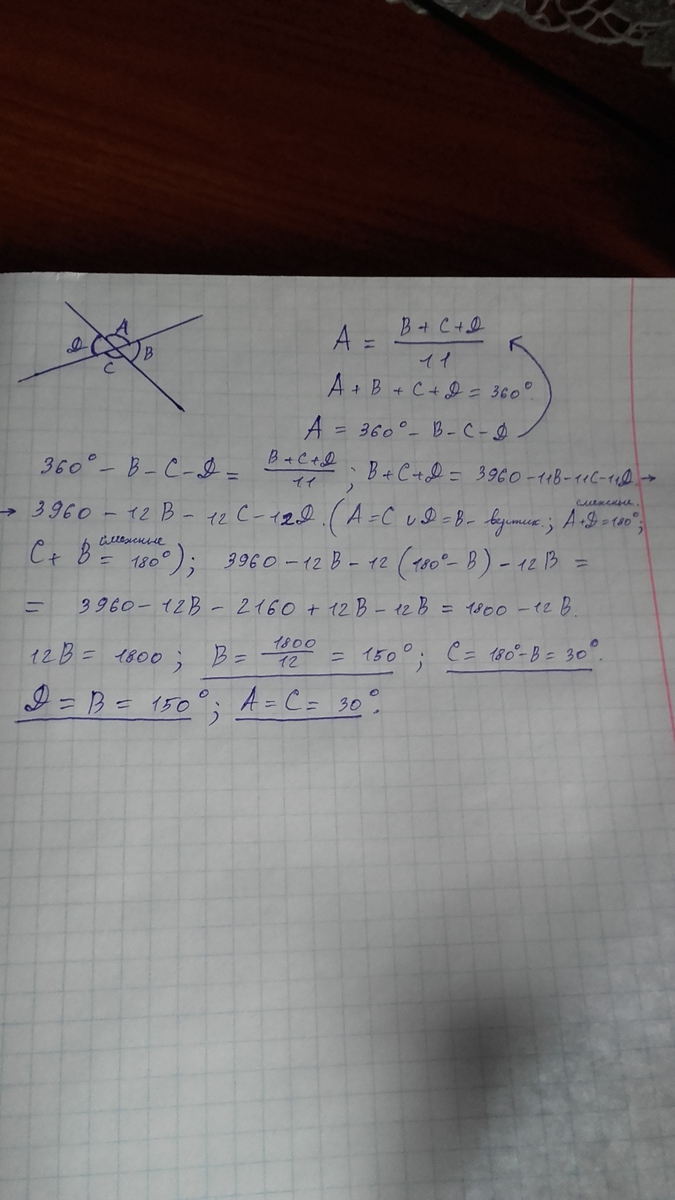 A
D B
C
A = (B + C + D)/11
A + B + C + D = 360°.
A = 360° - B - C - D
360° - B - C - D = (B+C+D)/11 ; B+C+D = 3960 - 11B - 11C - 11D →
→ 3960 - 12B - 12C - 12D. (A = C и D = B - ; A+D = 180° смежные;
C + B = 180° смежные); 3960 - 12B - 12(180° - B) - 12B =
= 3960 - 12B - 2160 + 12B - 12B = 1800 - 12B.
12B = 1800 ; B = 1800/12 = 150° ; C = 180° - B = 30°.
D = B = 150° ; A = C = 30°.